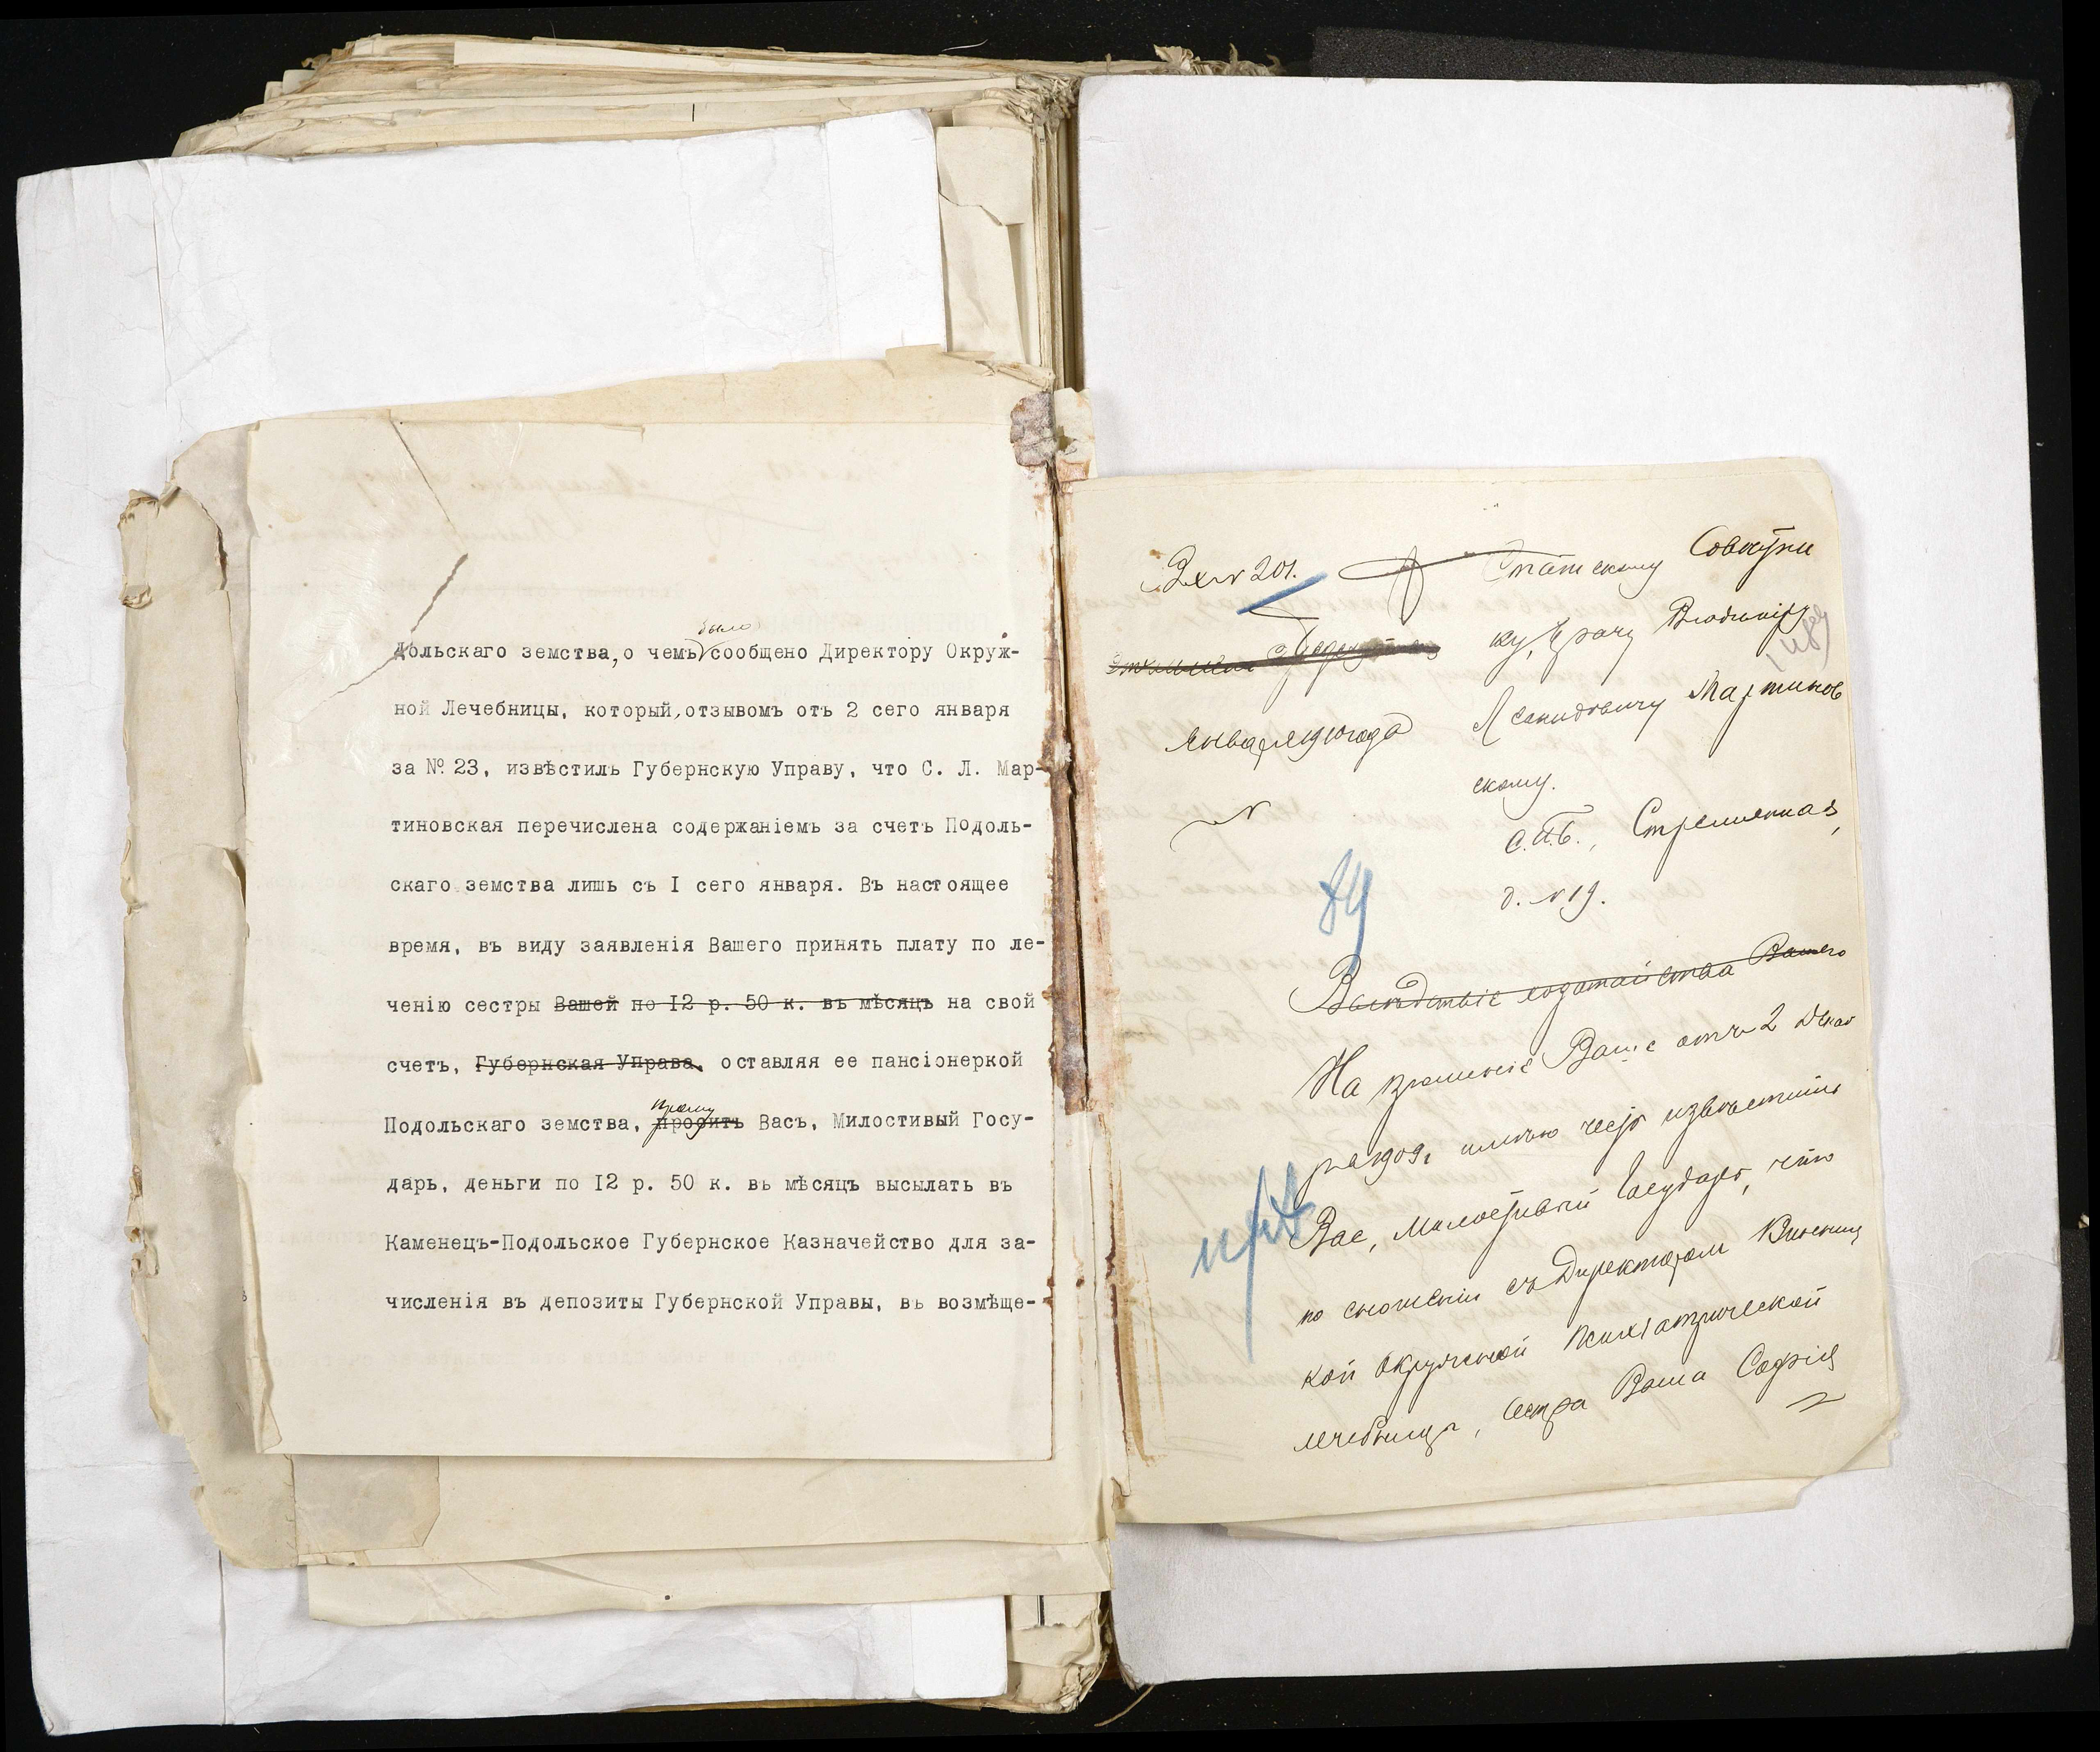 было
дольскаго земства, о чемъ сообщено Директору Окруж-
ной Лечебницы, который, отзывомъ отъ 2 сего января
за № 23, извѣстилъ Губернскую Управу, что С. Л. Мар-
тиновская перечислена содержаніемъ за счетъ Подоль-
скаго земства лишь съ I сего января. Въ настоящее
время, въ виду заявленія Вашего принять плату по ле-
ченію сестры Вашей по I2 р. 50 к. въ мѣсяцъ на свой
счетъ, Губернская Управа, оставляя ее пансіонеркой
прошу
Подольскаго земства, просить Васъ, Милостивый Госу-
дарь, деньги по I2 р. 50 к. въ мѣсяцъ высылать въ
Каменецъ-Подольское Губернское Казначейство для за-
численія въ депозиты Губернской Управы, въ возмѣще-
Вх № 201.
Статскому Совѣтни
ку, Врачу Владиміру
Января 1910 года
Леонидовичу Мартинов
скому.
№
С.П.Б., Стремянная,
д. № 19.
Вслѣдствіе ходатайства Вашего
На прошеніе Ваше отъ 2 Декаб
ря 1909 г. имѣю честь извѣстить
Вас, Милостивый Государь, что
по сношеніи съ Директором Винниц
кой Окружной Психіатрической
лечебницы, сестра Ваша Софія